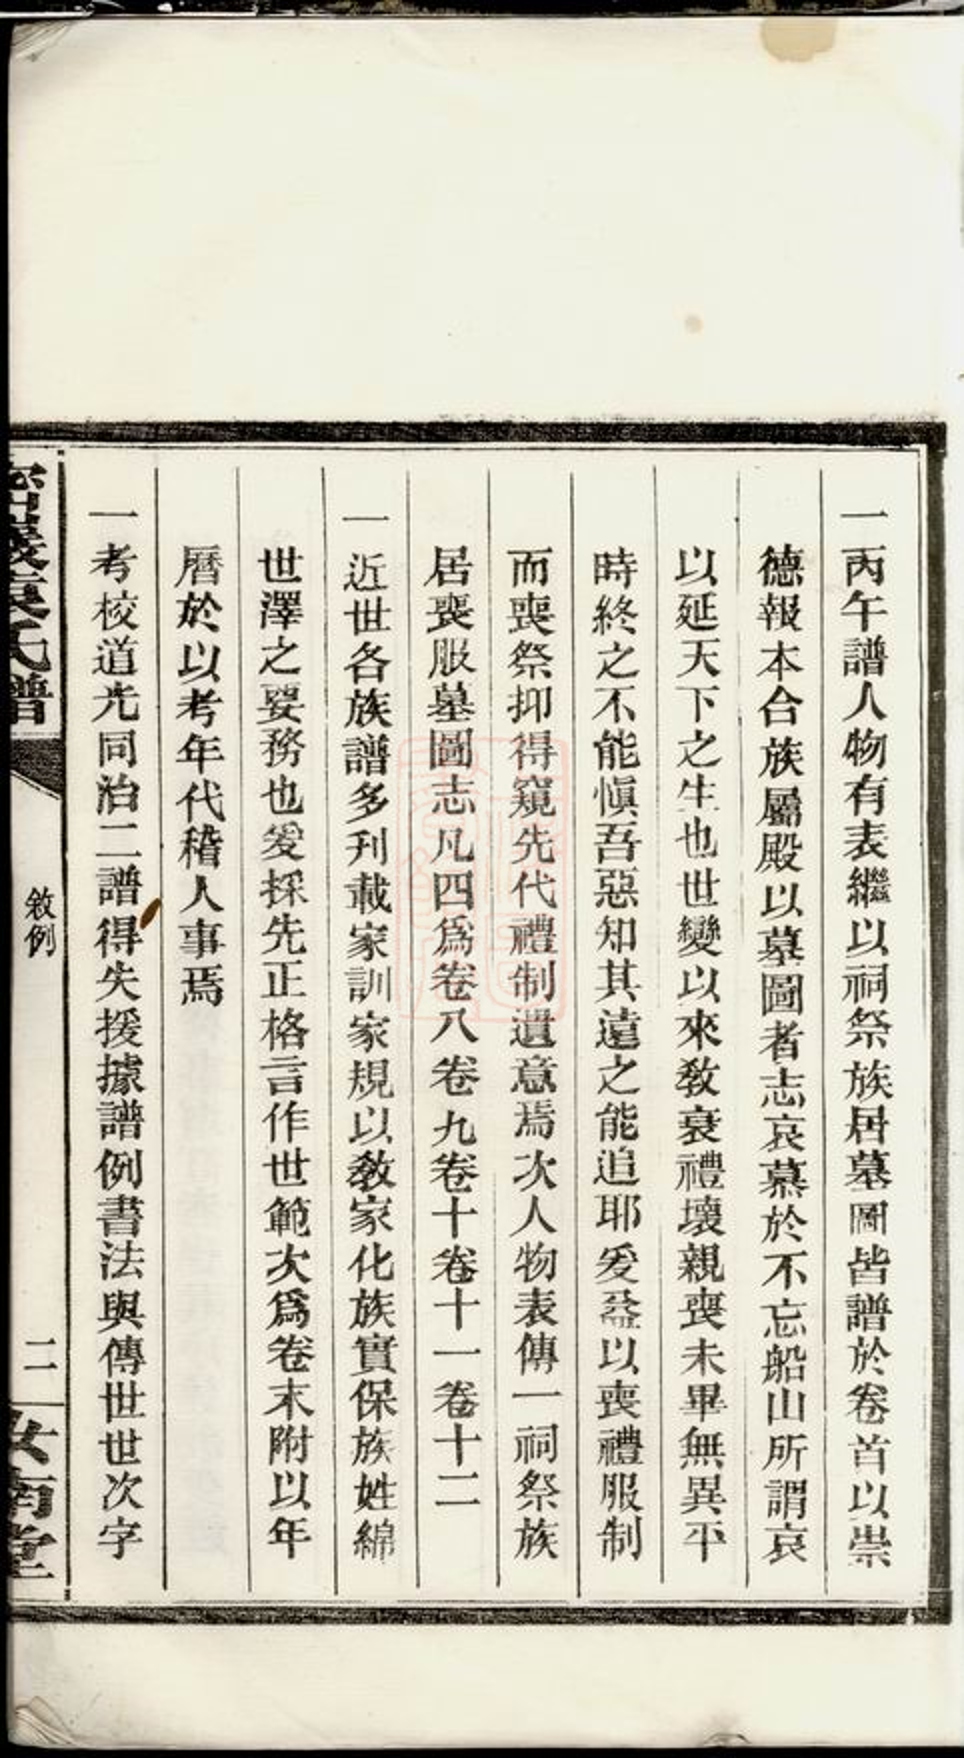 一丙午譜人物有表繼以祠祭族居墓圖皆譜於卷首以崇
德報本合族屬殿以墓圖者志哀慕於不忘船山所謂哀
以延天下之生也世變以來敎衰禮壞親喪未畢無異平
時終之不能愼吾惡知其遠之能追耶爰益以喪禮服制
而喪祭抑得窺先代禮制遺意焉次人物表傳一祠祭族
居喪服墓圖志凡四爲卷八卷九卷十卷十一卷十二
一近世各族譜多刋載家訓家規以敎家化族實保族姓綿
世澤之要務也爰採先正格言作世範次爲卷末附以年
曆於以考年代稽人事焉
一考校道光同治二譜得失援據譜例書法與傳世世次字
氏譜
敘例
二
汝南堂